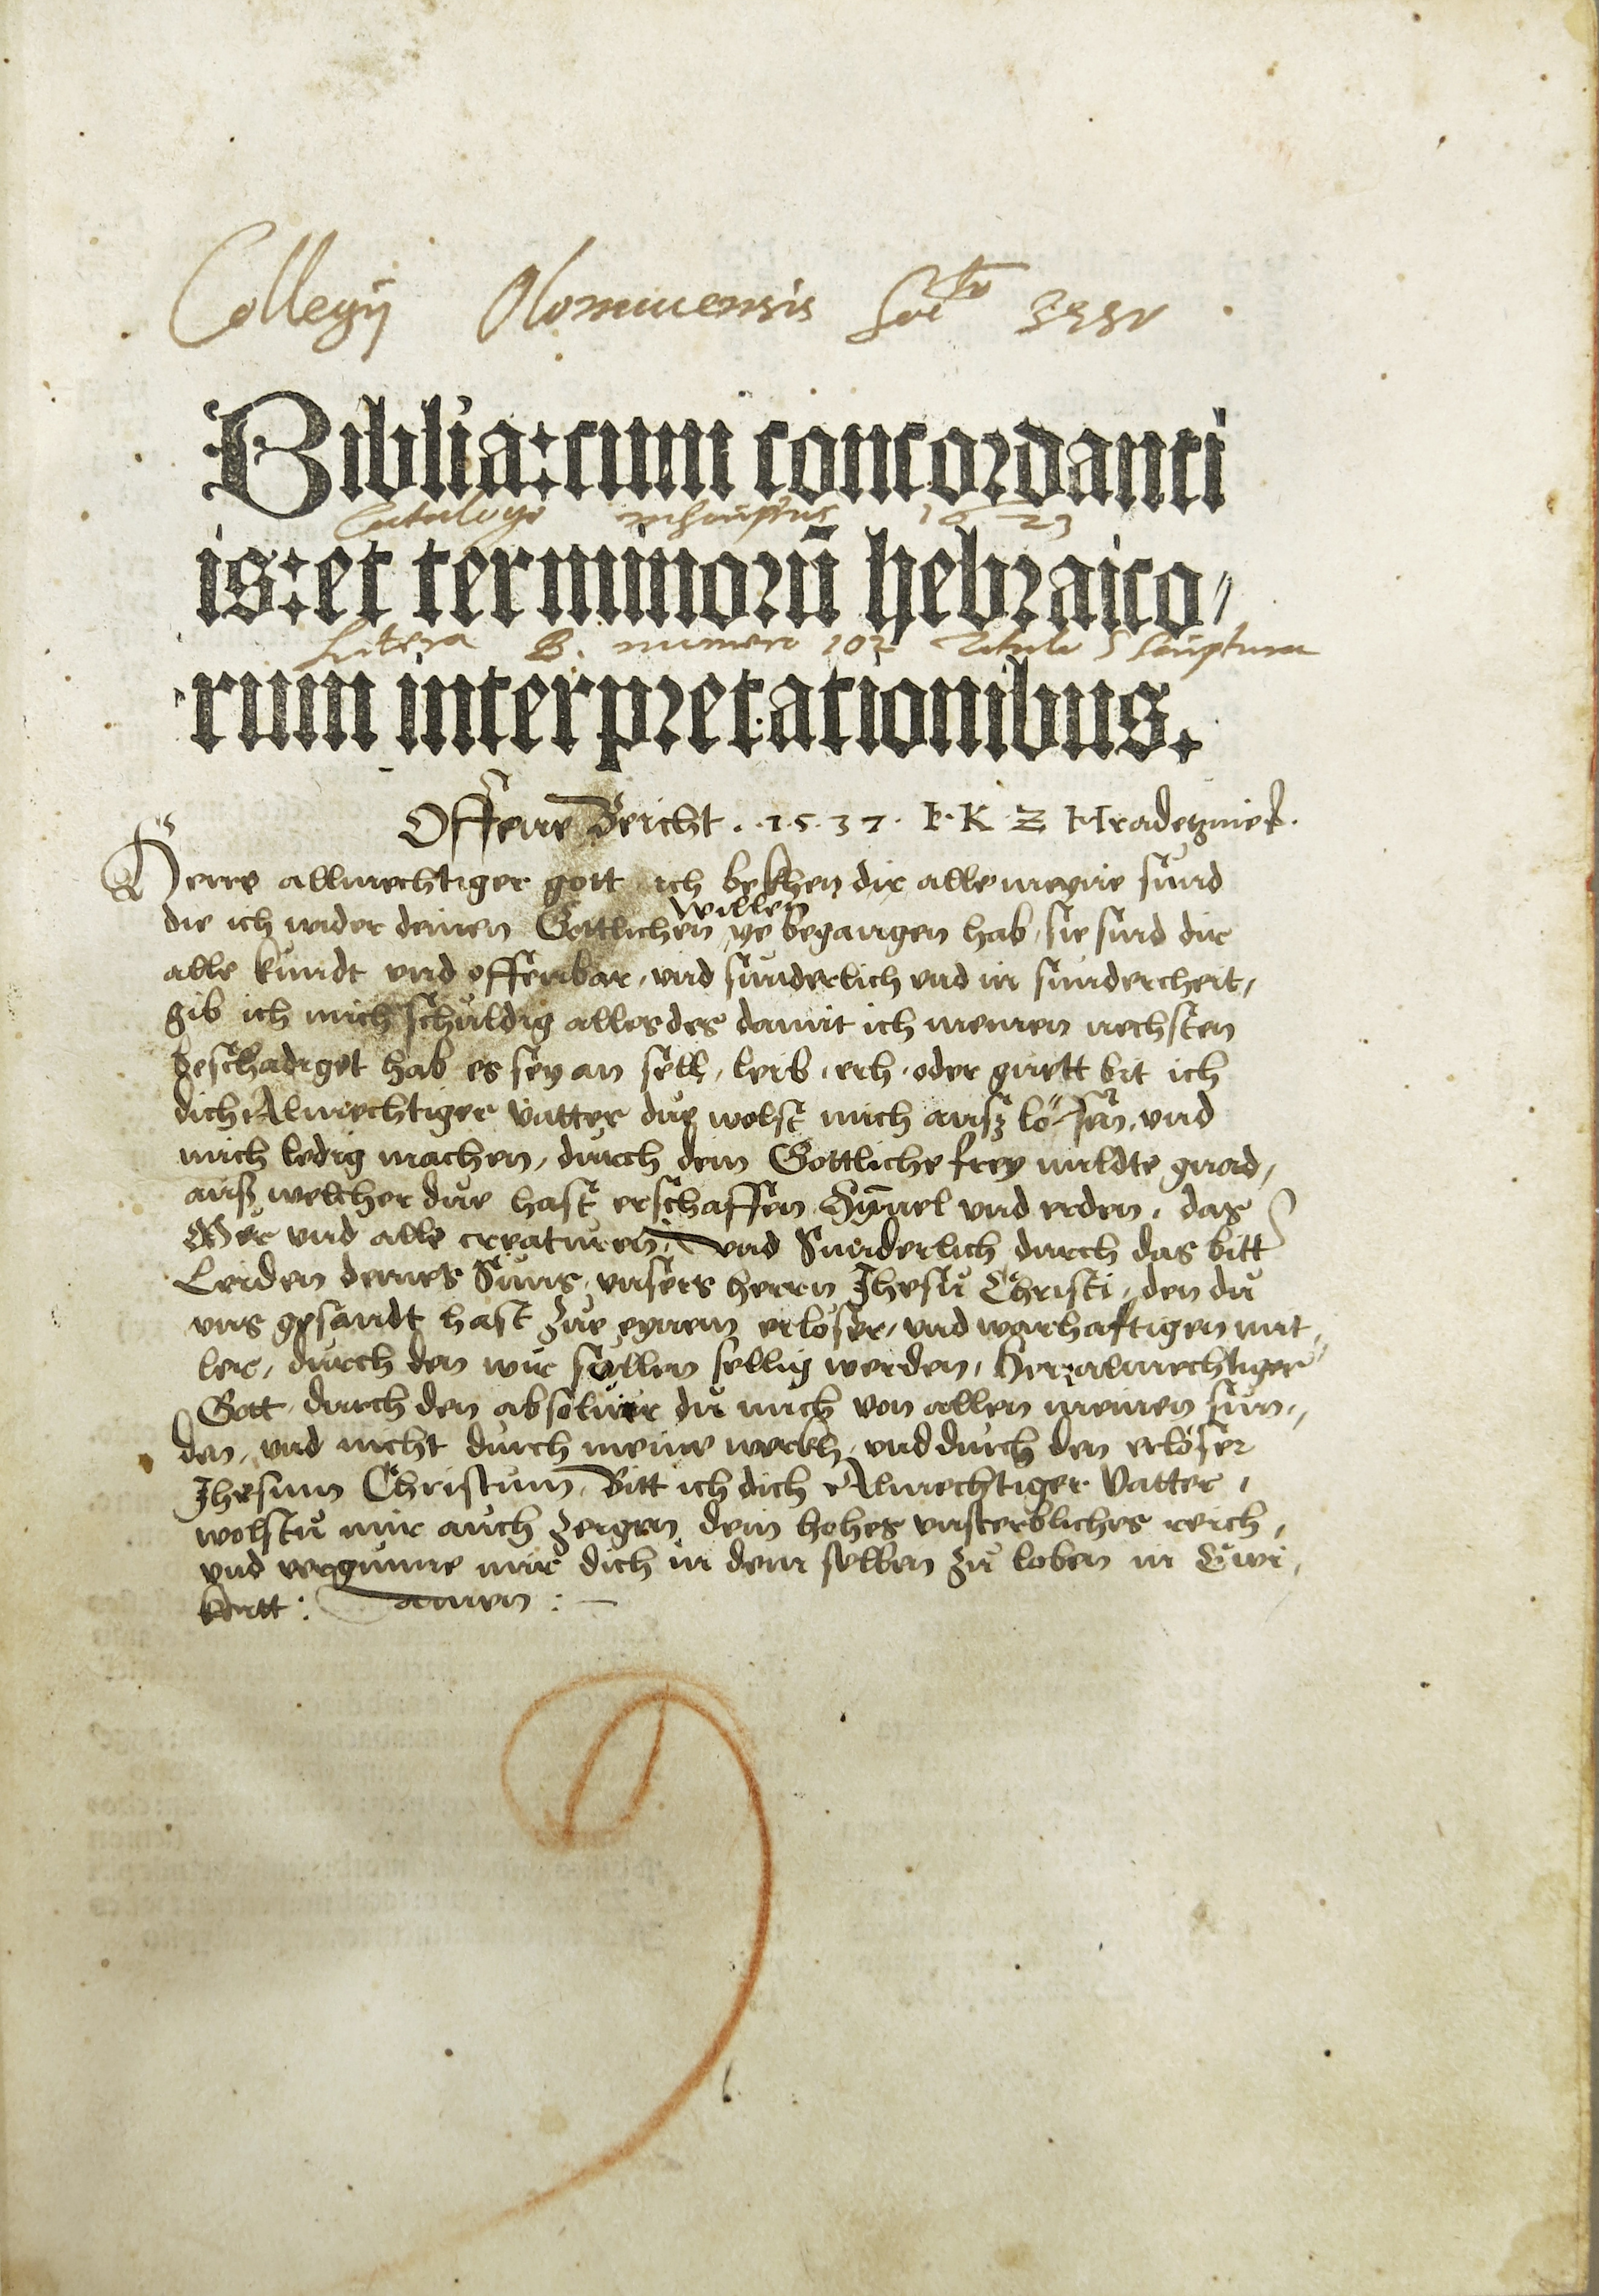 Collegij Olomucensis Soc^tis Jesu
Biblia: cum concordanti
Catalogo inscriptus 1623
is: et terminorū hebraico,
Litera B. numero 102 Tituli S Scriptura
rum interpretationibus.
Offene Beicht . 1.5.37. K Z Hradetz
Herre allmechtiger gott ich bekhen dir alle meyne sünd
die ich wider deinen Gottlichen willen ye begangen hab, sie sind dir
alle kündt vnd offenbar, vnd sünderlich vnd in sünderheit,
gib ich mich schüldig alles des damit ich meinen nechsten
beschadiget hab es sey an sell, leib, erh, oder guett bit ich
dich Almechtiger vatter due wolst mich ausz lö-sen, vnd
mich ledig machen, dürch dein Gottliche frey mildte gnad,
auß welcher due hast erschaffen Hÿmel vnd erden, das
Mer vnd alle creaturen, vnd Sünderlich dürch das bitt
Leiden deines Süns, vnsers herrn Jhesü Christi, den dü
vns gesandt hast züe eynem erlöser, vnd warhaftigen mit,
ler, dürch den wir süllen sellig werden, Herr almechtiger
Gott dürch den absolüir dü mich von allen meinen sün,,
den, vnd nicht dürch meine werkh, vnd dürch den erlöser
Jhesum Christüm, Bitt ich dich Almechtiger Vatter,
wolstü mir aüch zeigen dein hohes vnsterbliches reich,
vnd vergünne mir dich in dem selben zü loben in Ewi,
keitt: Amen: